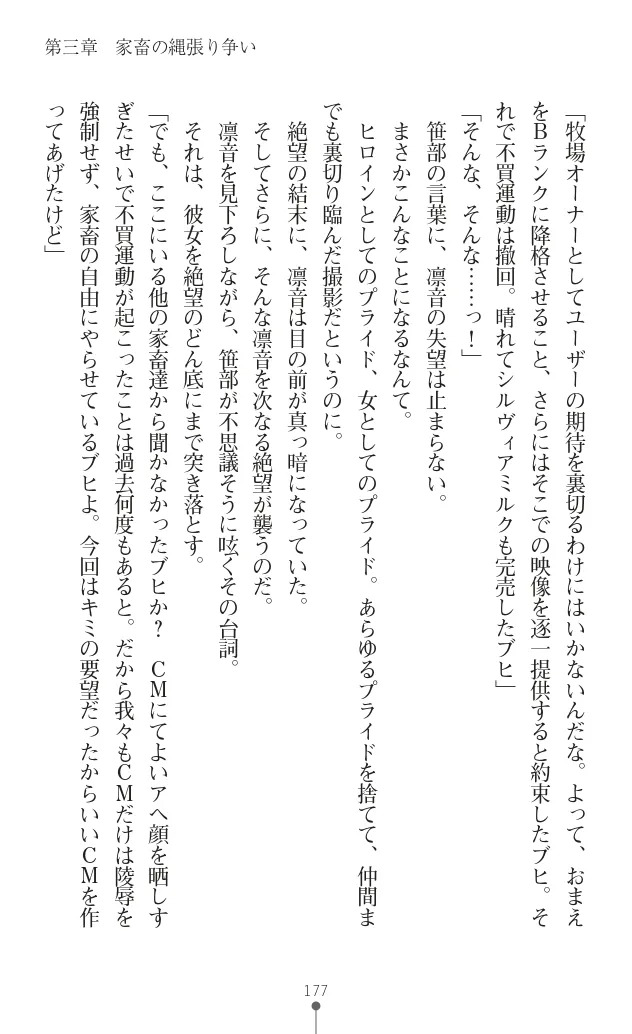 第三章　家畜の縄張り争い
「牧場オーナーとしてユーザーの期待を裏切るわけにはいかないんだな。よって、おまえ
をＢランクに降格させること、さらにはそこでの映像を逐一提供すると約束したブヒ。そ
れで不買運動は撤回。晴れてシルヴィアミルクも完売したブヒ」
「そんな、そんな……っ！」
笹部の言葉に、凛音の失望は止まらない。
まさかこんなことになるなんて。
ヒロインとしてのプライド、女としてのプライド。あらゆるプライドを捨てて、仲間ま
でも裏切り臨んだ撮影だというのに。
絶望の結末に、凛音は目の前が真っ暗になっていた。
そしてさらに、そんな凛音を次なる絶望が襲うのだ。
凛音を見下ろしながら、笹部が不思議そうに呟くその台詞。
それは、彼女を絶望のどん底にまで突き落とす。
「でも、ここにいる他の家畜達から聞かなかったブヒか？　ＣＭにてよいアヘ顔を晒しす
ぎたせいで不買運動が起こったことは過去何度もあると。だから我々もＣＭだけは陵辱を
強制せず、家畜の自由にやらせているブヒよ。今回はキミの要望だったからいいＣＭを作
ってあげたけど」
177